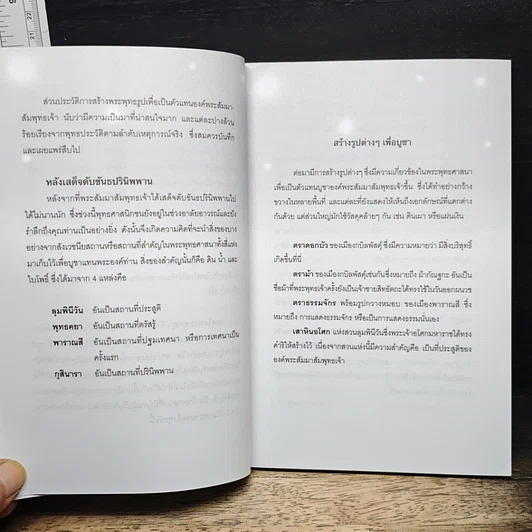 ส่วนประวัติการสร้างพระพุทธรูปเพื่อเป็นตัวแทนองค์พระสัมมา-
สัมพุทธเจ้า นับว่ามีความเป็นมาที่น่าสนใจมาก และแต่ละปางล้วน
ร้อยเรียงจากพุทธประวัติตามลำดับเหตุการณ์จริง ซึ่งสมควรบันทึก
และเผยแพร่สืบไป
หลังเสด็จดับขันธปรินิพพาน
หลังจากที่พระสัมมาสัมพุทธเจ้าได้เสด็จดับขันธปรินิพพานไป
ได้ไม่นานนัก ซึ่งช่วงนี้พุทธศาสนิกชนยังอยู่ในช่วงอาลัยอาวรณ์และยัง
รำลึกถึงคุณท่านเป็นอย่างยิ่ง ดังนั้นจึงเกิดความคิดที่จะนำสิ่งของบาง
อย่างจากสังเวชนียสถานหรือสถานที่สำคัญในพระพุทธศาสนาทั้งสี่แห่ง
มาเก็บไว้เพื่อบูชาแทนพระองค์ท่าน สิ่งของสำคัญนั้นก็คือ ดิน น้ำ และ
ใบโพธิ์ ซึ่งได้มาจาก 4 แหล่งคือ
ลุมพินีวัน อันเป็นสถานที่ประสูติ
พุทธคยา อันเป็นสถานที่ตรัสรู้
พาราณสี อันเป็นสถานที่ปฐมเทศนา หรือการเทศนาเป็น
ครั้งแรก
กุสินารา อันเป็นสถานที่ปรินิพพาน
สร้างรูปต่างๆ เพื่อบูชา
ต่อมามีการสร้างรูปต่างๆ ซึ่งมีความเกี่ยวข้องในพระพุทธศาสนา
เพื่อเป็นตัวแทนบูชาองค์พระสัมมาสัมพุทธเจ้าขึ้น ซึ่งได้ทำอย่างกว้าง
ขวางในหลายพื้นที่ และแต่ละที่ยังแสดงให้เห็นถึงเอกลักษณ์ที่แตกต่าง
กันด้วย แต่ส่วนใหญ่มักใช้วัสดุคล้ายๆ กัน เช่น ดินเผา หรือแผ่นเงิน
ตราดอกบัว ของเมืองกบิลพัสดุ์ ซึ่งมีความหมายว่า มีสิ่งบริสุทธิ์
เกิดขึ้นที่นี่
ตราม้า ของเมืองกบิลพัสดุ์เช่นกันซึ่งหมายถึง ม้ากัณฐกะ อันเป็น
ชื่อม้าที่พระพุทธเจ้าครั้งยังเป็นเจ้าชายสิทธัตถะได้ทรงใช้ในวันออกผนวช
ตราธรรมจักร พร้อมรูปกวางหมอบ ของเมืองพาราณสี ซึ่ง
หมายถึง การแสดงธรรมจักร หรือเป็นการแสดงธรรมนั่นเอง
เสาหินอโศก แห่งสวนลุมพินีวันซึ่งพระเจ้าอโศกมหาราชได้ทรง
ดำริให้สร้างไว้ เนื่องจากสวนแห่งนี้มีความสำคัญคือ เป็นที่ประสูติของ
องค์พระสัมมาสัมพุทธเจ้า